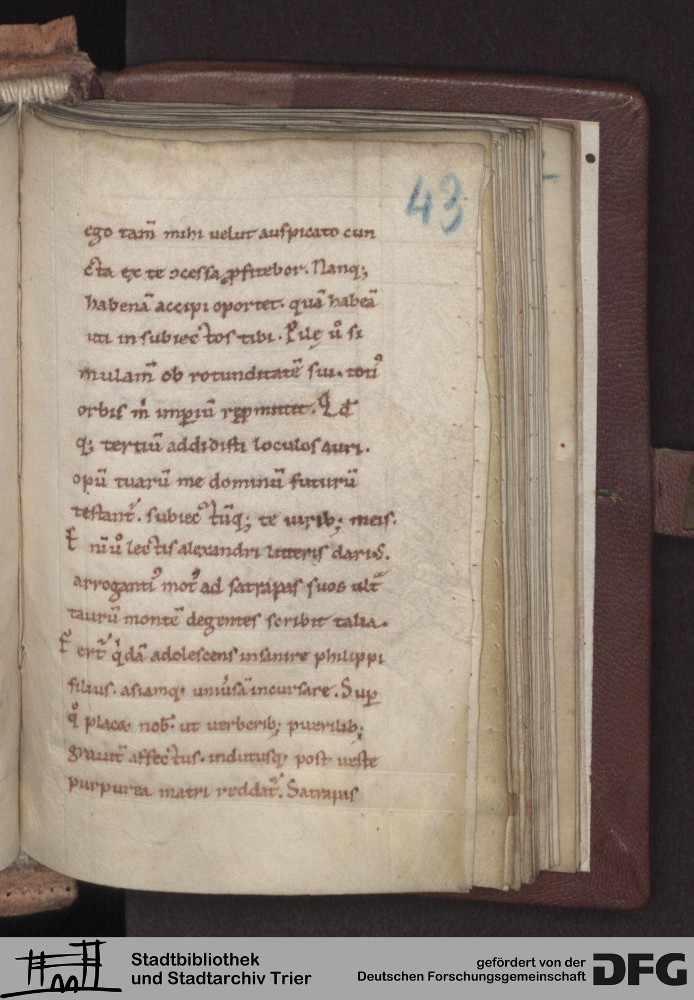 43
ego tam̄ mihi uelut auspicato cun
cta ex te ɔcessa ꝓfitebor. Nanq;
habenā accipi oportet. quā habeā
uti in subiectos tibi. Pilę ů si
mulam̄ ob rotunditatē sui. toti᾽
orbis m̄ imperiū
q; tertiū addidisti loculos auri.
opū tuarū me dominū futurū
testant̄. subiectūq; te uirib; meis.
lectis alexandri litteris dari᾽.
arroganti᾽ mot᾽ ad satrapas suos ult̄
taurū montē degentes scribit talia.
Fert̄ q̇dā adolescens insanire philippi
filius. asiamq; uniůsā incursare. Sup
q̊ placꝫ nob̄. ut uerberib; puerilib;
grauit̄ affectus. indutusq; post ueste
purpurea matri reddat̄. Satrapis
Stadtbibliothek
und Stadtarchiv Trier
gefördert von der
Deutschen Forschungsgemeinschaft
DFG